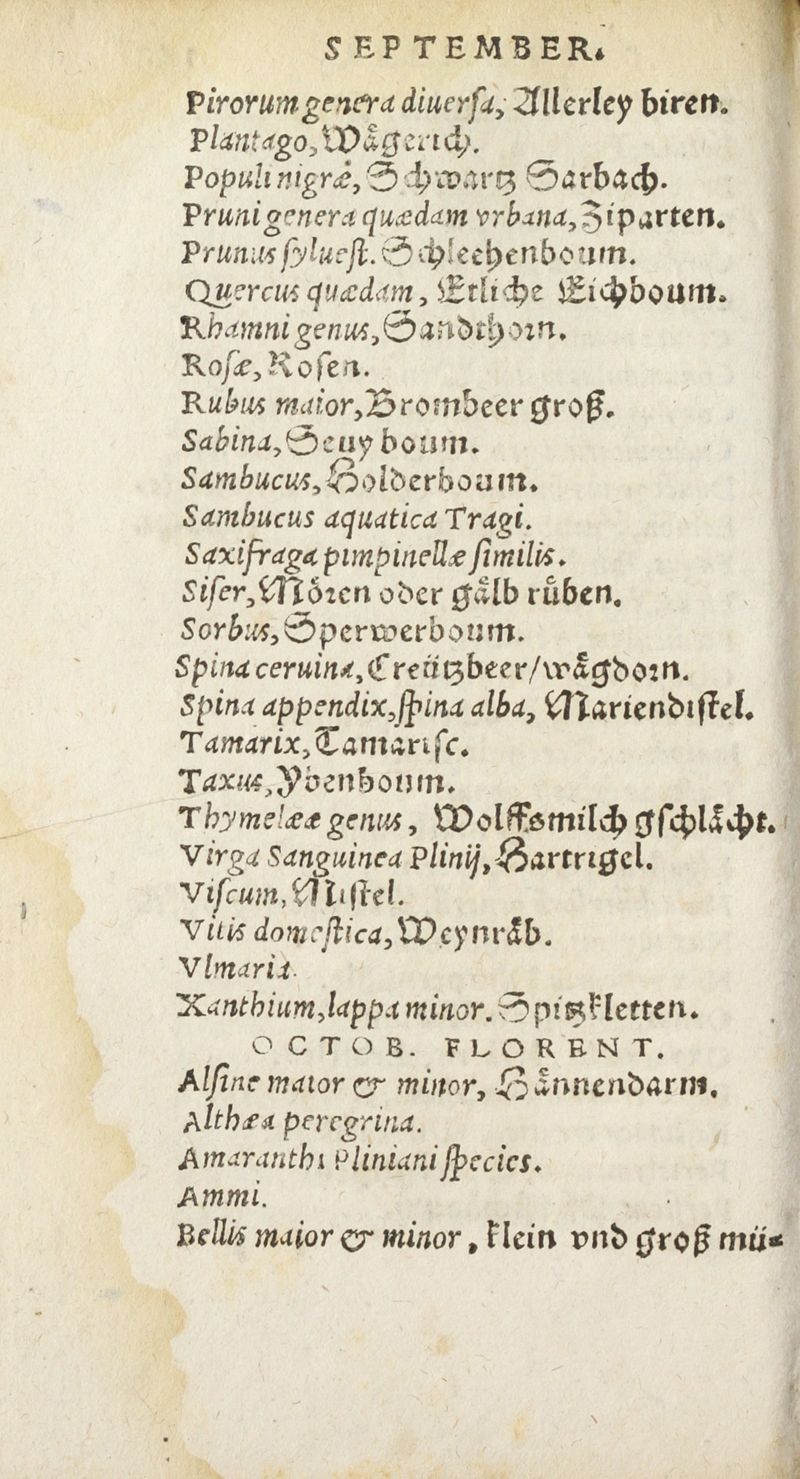 SEPTEMBER.
Pirorum genera diuersa, Allerley biren.
Plantago, Wågerich.
Populi nigræ, Schwartz Sarbach.
Pruni genera quædam vrbana, Ziparten.
Prunus syluest. Schleehenboum.
Quercus quædam, Etliche Eichboum.
Rhamni genus, Sandthorn.
Rosæ, Rosen.
Rubus maior, Brombeer groß.
Sabina, Seuy boum.
Sambucus, Holderboum.
Sambucus aquatica Tragi.
Saxifraga pimpinellæ similis.
Siser, Mören oder gålb růben.
Sorbus, Sperwerboum.
Spina ceruina, Creützbeer/wågdorn.
Spina appendix, spina alba, Mariendistel.
Tamarix, Tamarisc.
Taxus, Ybenboum.
Thymelææ genus, Wolffsmilch gschlächt.
Virga Sanguinea Plinij, Hartrigel.
Viscum, Mistel.
Vitis domestica, Weynråb.
Vlmaria.
Xanthium, lappa minor. Spitzkletten.
OCTOB. FLORENT.
Alsine maior & minor, Hånnendarm.
Althæa peregrina.
Amaranthi Pliniani species.
Ammi.
Bellis maior & minor, klein vnd groß mü⸗